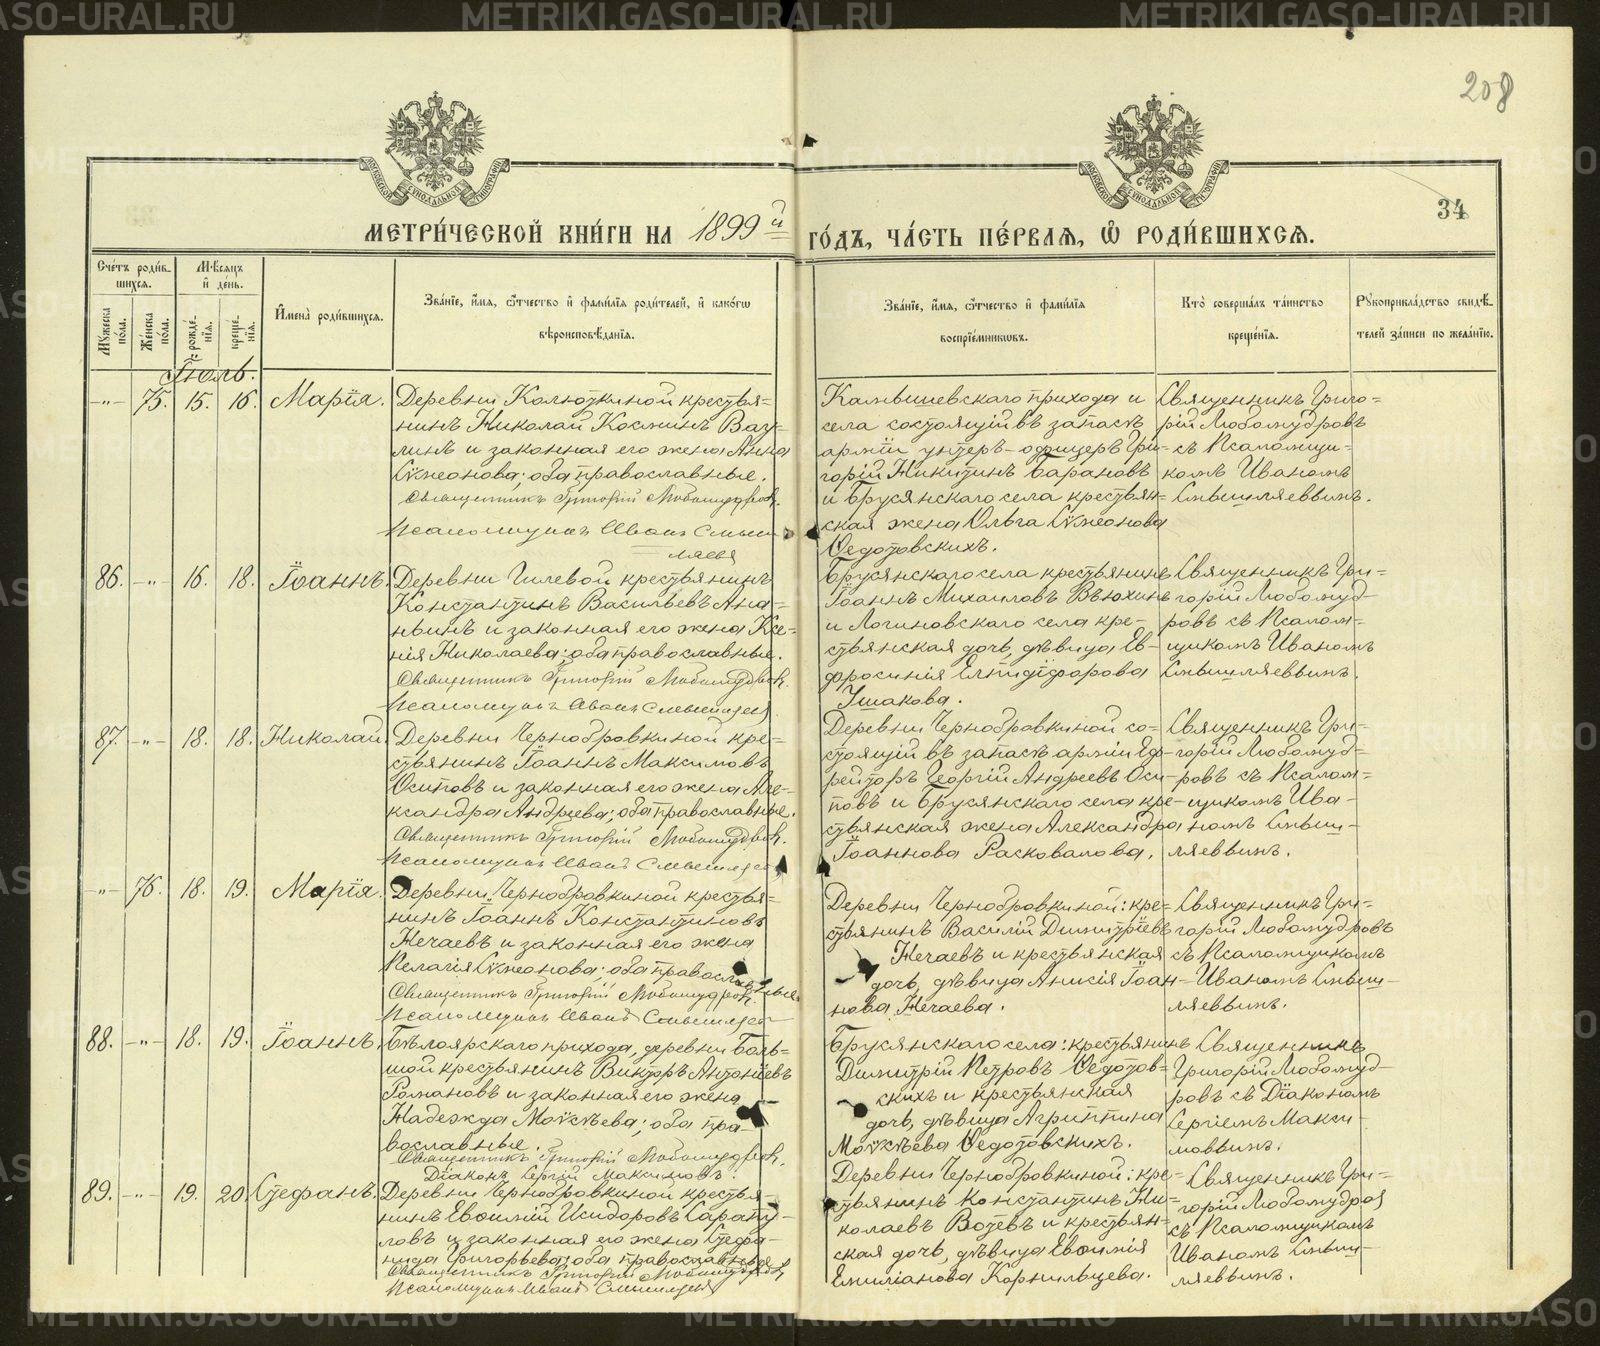 208
34
МЕТРИ́ЧЕСКОЙ КНИ́ГИ НА 1899й
ГО́ДЪ, ЧА́СТЬ ПЕ́РВАЯ, Ѡ҆ РОДИ́ВШИХСЯ.
Сче́тъ роди́вшихся.
Му́жеска по́ла.
Же́нска по́ла.
Мѣ́сяцъ и҆ де́нь.
рожде́нїя.
креще́нїя.
И҆мена̀ роди́вшихся.
Зва́нїе, и҆́мя, ѻ҆́тчество и҆ фами́лїя роди́телей, и҆ како́гѡ
вѣроисповѣ́данїя.
Зва́нїе, и҆́мя, ѻ҆́тчество и҆ фами́лїя
воспрїе́мникѡвъ.
Кто̀ соверша́лъ та́инство
креще́нїя.
Рꙋкоприкла́дство свидѣ́-
телей за́писи по жела́нїю.
Іюль.
-"- 75. 15. 16. Марія.
Деревни Колюткиной крестья=
нинъ Николай Косминъ Вау=
линъ и законная его жена Анна
Сѵмеонова; оба православные.
Священникъ Григорій Любомудровъ.
Псаломщикъ Иванъ Смыш
ляевъ
Камышевскаго прихода и
села состоящій въ запасѣ
арміи унтеръ-офицеръ Гри-
горій Никитинъ Барановъ
и Брусянскаго села крестьян=
ская жена Ольга Сѵмеонова
Ѳедотовскихъ.
Священникъ Григо=
рій Любомудровъ
съ Псаломщи-
комъ Иваномъ
Смышляевымъ.
86. -"- 16. 18. Іоаннъ.
Деревни Гилевой крестьянинъ
Константинъ Васильевъ Ана=
ньинъ и законная его жена Ксе=
нія Николаева; оба православные.
Священникъ Григорій Любомудровъ.
Псаломщикъ Иванъ Смышляевъ
Брусянскаго села крестьянинъ
Іоаннъ Михаиловъ Вьюхинъ
и Логиновскаго села кре-
стьянская дочь, дѣвица Ев-
фросинія Елпидіфорова
Ушакова.
Священникъ Гри=
горій Любомуд-
ровъ съ Псалом=
щикомъ Иваномъ
Смышляевымъ.
87. -"- 18. 18. Николай.
Деревни Чернобровкиной кре=
стьянинъ Іоаннъ Максимовъ
Осиповъ и законная его жена Але-
ксандра Андреева; оба православные.
Священникъ Григорій Любомудровъ.
Псаломщикъ Иванъ Смышляевъ
Деревни Чернобровкиной со=
стоящій въ запасѣ арміи Еф-
рейторъ Георгій Андреевъ Оси-
повъ и Брусянскаго села кре-
стьянская жена Александра
Іоаннова Расковалова.
Священникъ Гри-
горій Любомуд-
ровъ съ Псалом=
щикомъ Ива-
номъ Смыш-
ляевымъ.
-"- 76. 18. 19. Марія.
Деревни Чернобровкиной крестья=
нинъ Іоаннъ Константиновъ
Нечаевъ и законная его жена
Пелагія Сѵмеонова; оба православные.
Священникъ Григорій Любомудровъ.
Псаломщикъ Иванъ Смышляевъ
Деревни Чернобровкиной: кре=
стьянинъ Василій Димитріевъ
Нечаевъ и крестьянская
дочь, дѣвица Анисія Іоан-
нова Нечаева.
Священникъ Гри-
горій Любомудровъ
съ Псаломщикомъ
Иваномъ Смыш-
ляевымъ.
88. -"- 18. 19. Іоаннъ.
Бѣлоярскаго прихода, деревни Боль=
шой крестьянинъ Викторъ Антоніевъ
Романовъ и законная его жена
Надежда Моѵсѣева; оба пра-
вославные.
Священникъ Григорій Любомудровъ.
Діаконъ Сергій Максимовъ.
Брусянскаго села: крестьянинъ
Димитрій Петровъ Ѳедотов-
скихъ и крестьянская
дочь, дѣвица Агриппина
Моѵсѣева Ѳедотовскихъ.
Священникъ
Григорій Любомуд-
ровъ съ Діакономъ
Сергіемъ Макси-
мовымъ.
89. -"- 19. 20 Стефанъ.
Деревни Чернобровкиной крестья-
нинъ Евѳимій Исидоровъ Сарапу-
ловъ и законная его жена Стефа-
нида Григорьева; оба православные
Священникъ Григорій Любомудровъ,
Псаломщикъ Иванъ Смышляевъ
Деревни Чернобровкиной: кре=
стьянинъ Константинъ Ни-
колаевъ Вотевъ и крестьян=
ская дочь, дѣвица Евѳимія
Емиліанова Корнильцева.
Священникъ Гри-
горій Любомудров
съ Псаломщикомъ
Иваномъ Смыш-
ляевымъ.
METRIKI.GASO-URAL.RU